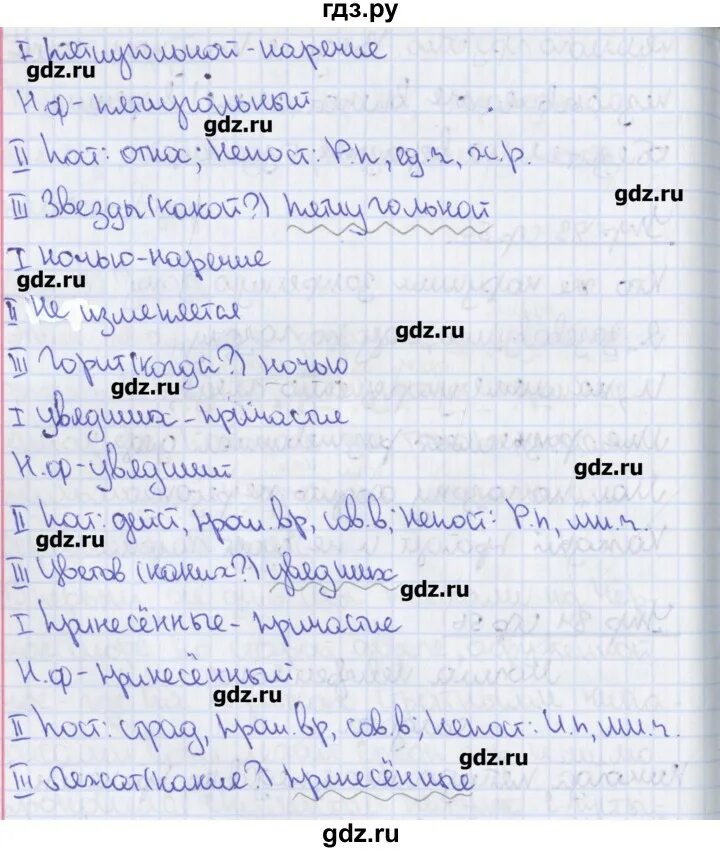 гдз.ру
I Пятиугольной - наречие
gdz.ru
Н.ф - пятиугольный
gdz.ru
II Пост: относ; Непост: Р.п, ед.ч, ж.р.
gdz.ru
III Звезды (какой?) пятиугольной
I Ночью - наречие
gdz.ru
II Не изменяется
gdz.ru
III Горит (когда?) ночью
gdz.ru
I Увядших - причастие
Н.ф - увядший
gdz.ru
II Пост: дейст, прош.вр, сов.в; Непост: Р.п, мн.ч.
gdz.ru
III Цветов (каких?) увядших
gdz.ru
I Принесённые - причастие
Н.ф - принесённый
gdz.ru
II Пост: страд, прош.вр, сов.в; Непост: И.п, мн.ч.
gdz.ru
III Лежат (какие?) принесённые
gdz.ru